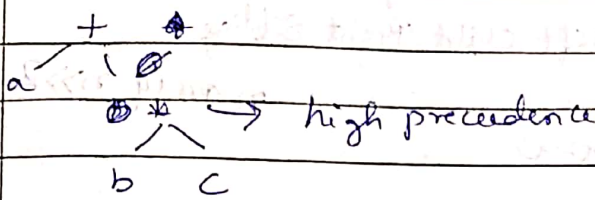 +
a
* → high precedence
b c